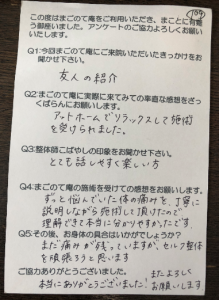 109
この度はまごめて庵をご利用いただき、まことに有難
う御座いました。アンケートのご協力よろしくお願い
いたします。
Q1:今回まごめて庵にご来院いただいたきっかけをお
聞かせ下さい。
友人の紹介
Q2:まごめて庵に実際に来てみての率直な感想をざっ
くばらんにお願いします。
アットホームでリラックスして施術
を受けられました。
Q3:整体師こばやしの印象をお聞かせ下さい。
とても話しやすく楽しい方
Q4:まごめて庵の施術を受けての感想をお願いします。
ずっと悩んでいた体の痛みを、丁寧に
説明しながら施術して頂けたので
理解できて本当に分かりやすかったです.
Q5:その後、お身体の具合はいかがでしょうか?
まだ痛みが残っていますが、セルフ整体
を頑張ろうと思います
ご協力ありがとうございました。
またよろしく
本当にありがとうございました!
お願いします